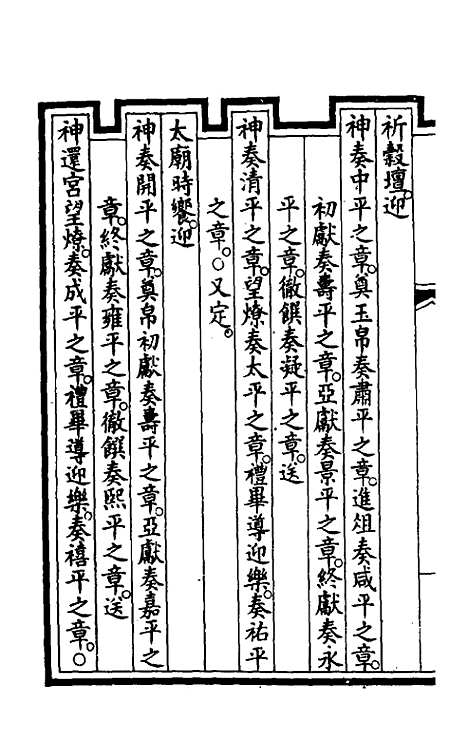 祈穀壇。迎
神奏中平之章。奠玉帛奏肅平之章。進俎奏咸平之章。
初獻奏壽平之章。亞獻奏景平之章。終獻奏永
平之章。徹饌奏凝平之章。送
神奏清平之章。望燎奏太平之章。禮畢導迎樂。奏祐平
之章。○又定。
太廟時饗。迎
神奏開平之章。奠帛初獻奏壽平之章。亞獻奏嘉平之
章。終獻奏雍平之章。徹饌奏熙平之章。送
神還宮望燎。奏成平之章。禮畢導迎樂。奏禧平之章。○